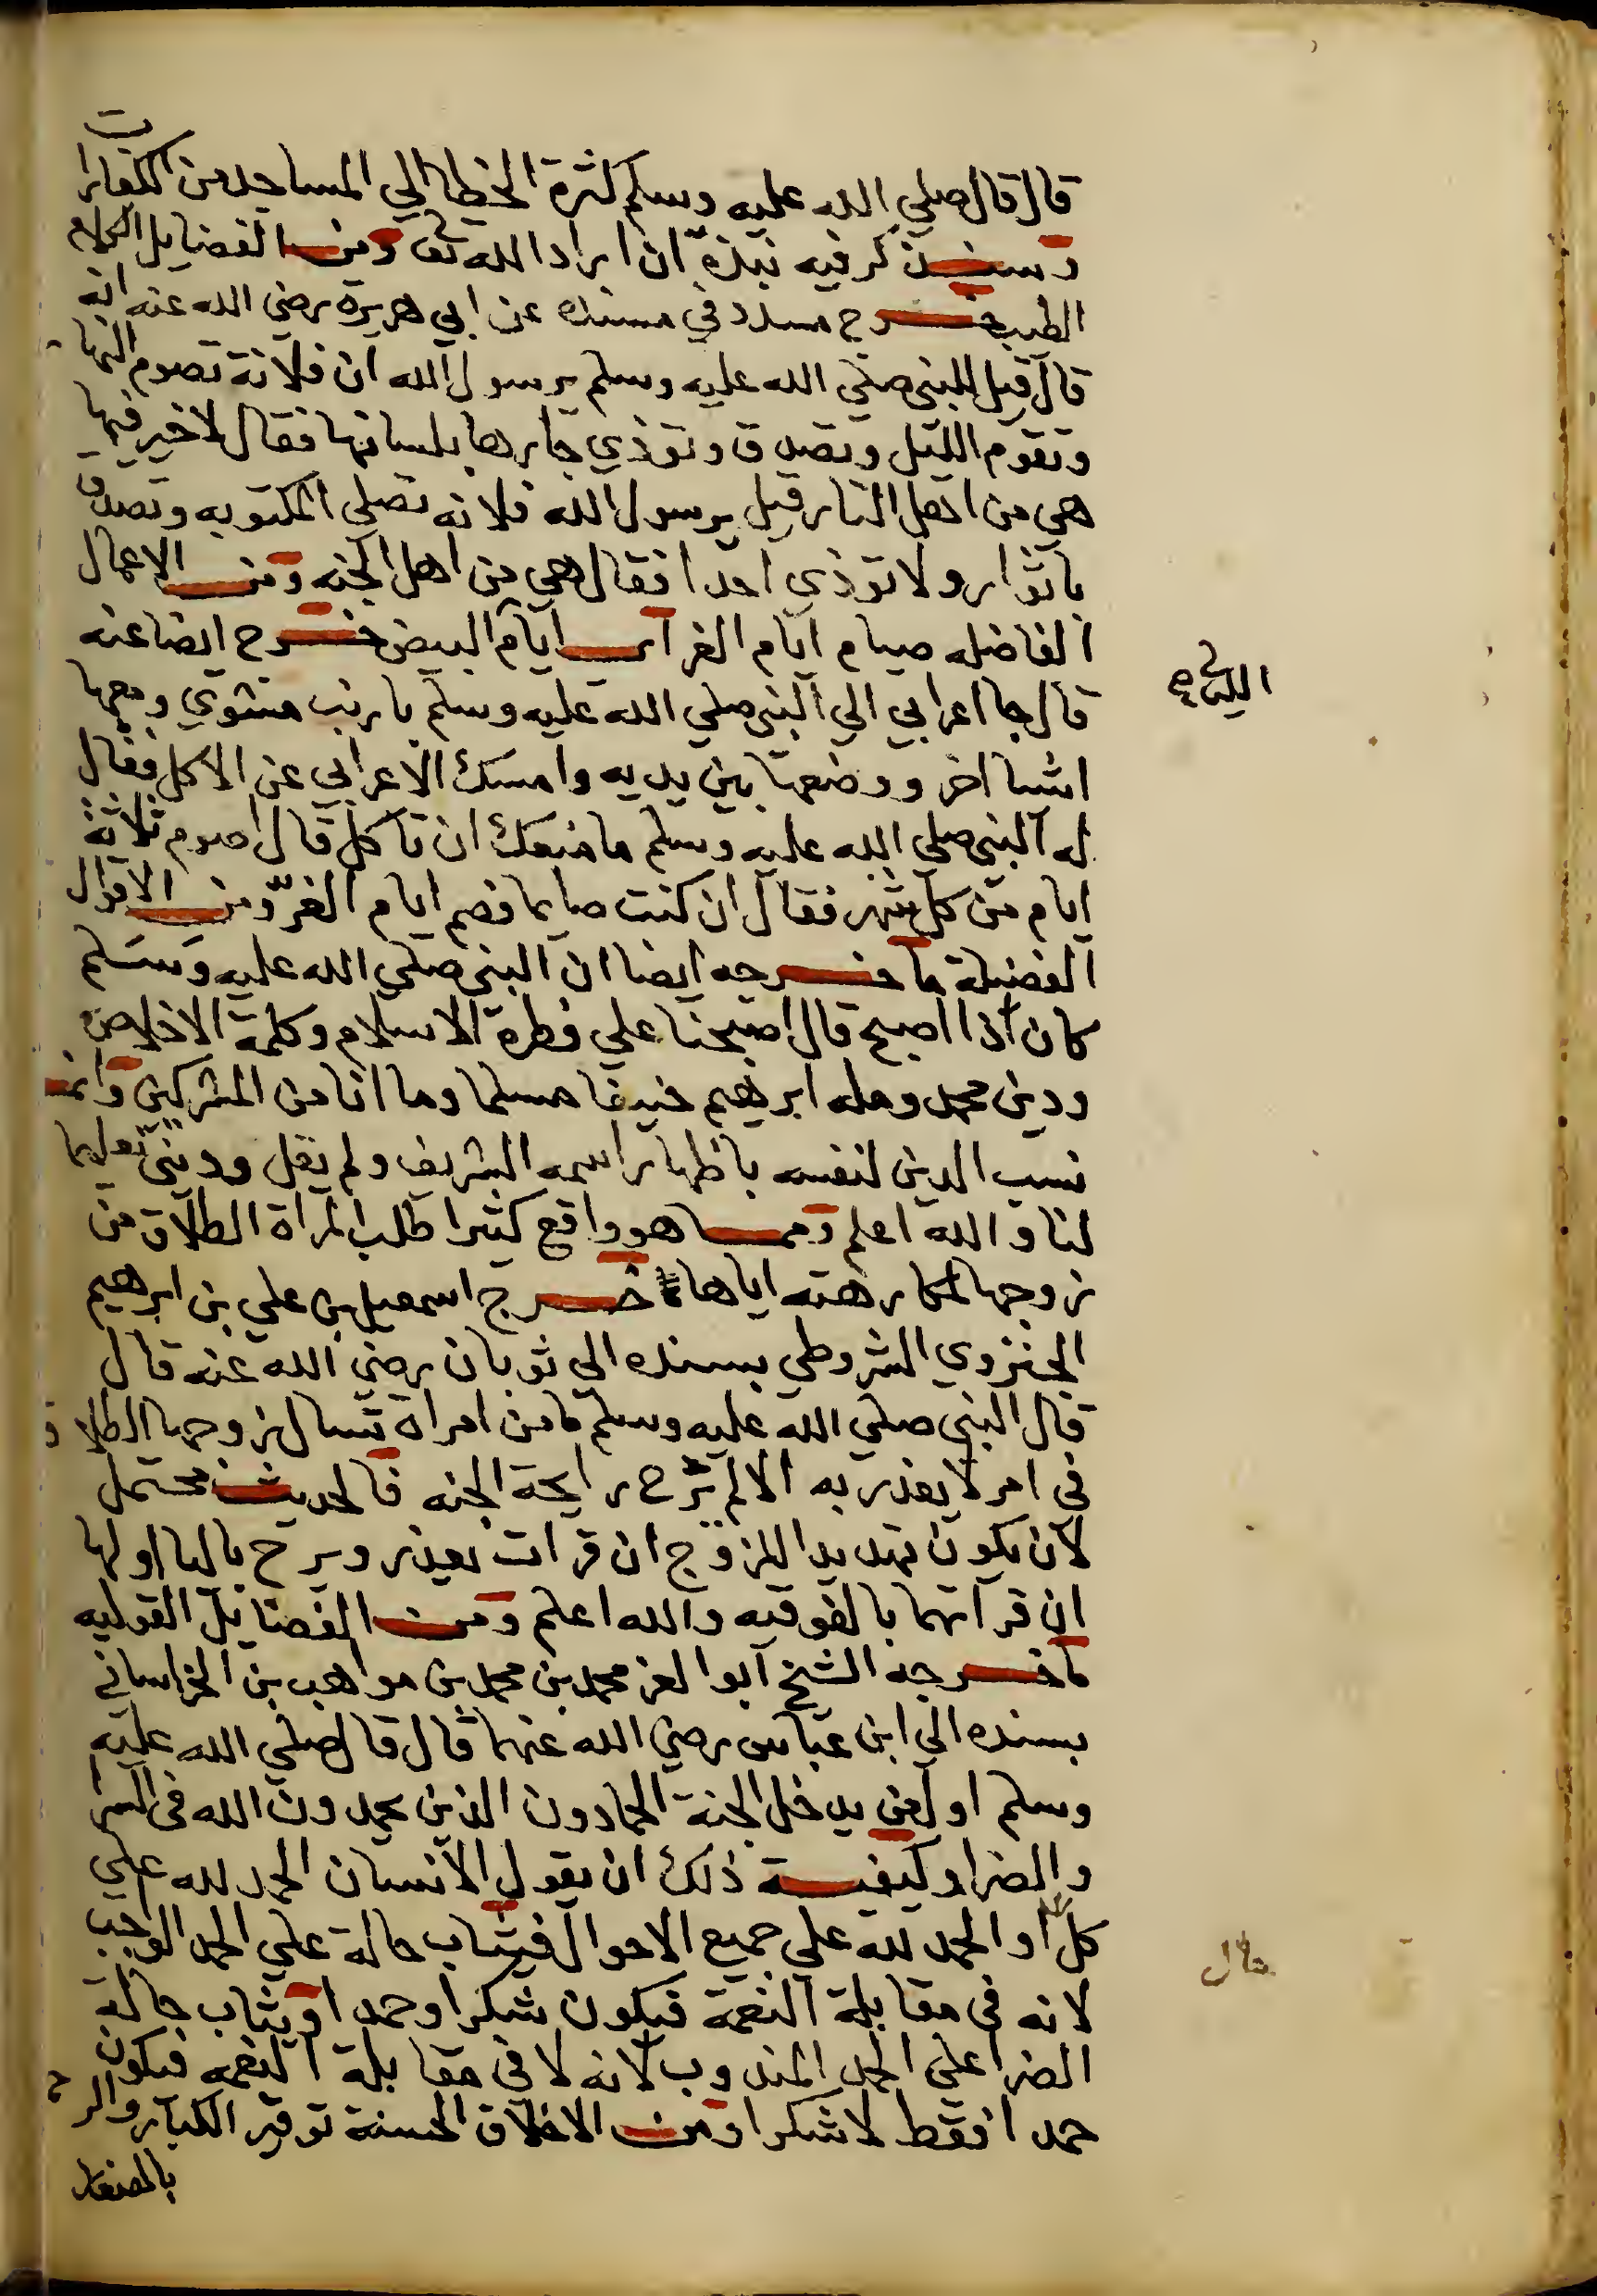 قال قال صلي الله عليه وسلم كثرة الخطا الي المساجد من الكفارات
وسنذكر فيه نبذة ان اراد الله تع ومن الفضايل الكلام
الطيب خرج مسدد في مسنده عن ابي هريرة رضي الله عنه انه
قال قيل للنبي صلي الله عليه وسلم يرسول الله ان فلانة تصوم النهار
وتقوم الليل وتصدق وتوذي جارها بلسانها فقال لا خير فيها
هي من اهل النار قيل يرسول الله فلانه تصلي المكتوبه وتصدق
باثوار ولا توذي احدا فقال هي من اهل الجنه ومن الاعمال
الفاضله صيام ايام الغر اي ايام البيض خرج ايضا عنه
الليالي صح
قال جا اعرابي الي النبي صلي الله عليه وسلم بارنب مشوي ومعها
اشيا اخر ووضعها بين يديه وامسك الاعرابي عن الاكل فقال
له النبي صلي الله عليه وسلم ما منعك ان تاكل قال اصوم ثلاثة
ايام من كل شهر فقال ان كنت صايما فصم ايام الغر ومن الاقوال
الفضيلة ما خرجه ايضا ان النبي صلي الله عليه وسلم
كان اذا اصبح قال اصبحنا علي فطرة الاسلام وكلمة الاخلاص
ودين محمد ومله ابرهيم حنيفا مسلما وما انا من المشركين وانما
نسب الدين لنفسه باظهار اسمه الشريف ولم يقل وديني تعليما
لنا والله اعلم ومما هو واقع كثيرا طلب المراة الطلاق من
زوجها لكارهته اياها خرج اسمعيل بن علي بن ابرهيم
الجنزوي الشروطي بسنده الي ثوبان رضي الله عنه قال
قال النبي صلي الله عليه وسلم ما من امراة تسال زوجها الطلاق
في امر لا يعذر به الا لم ترح رايحة الجنه فالحديث محتمل
لان يكون تهديدا للزوج ان قرات يعذر ويرح باليا او لها
ان قراتهما بالفوقيه والله اعلم ومن الفضايل القوليه
ما خرجه الشيخ ابوا لعز محمد بن محمد بن مواهب بن الخراساني
بسنده الي ابن عباس رضي الله عنهما قال قال صلي الله عليه
وسلم اول من يدخل الجنة الحمادون الذين يحمدون الله في السرا
والضرا وكيفية ذلك ان يقول الانسان الحمد لله علي
كل حال او الحمد لله علي جميع الاحوال فيثاب حالة علي الحمد الواجب
لانه في مقابلة النعمة فيكون شكرا وحمدا ويثاب حالة
الضرا علي الحمد المندوب لانه لا في مقابلة النعمه فيكون
حمدا فقط لا شكرا ومن الاخلاق الحسنة توقير الكبار والرحمة